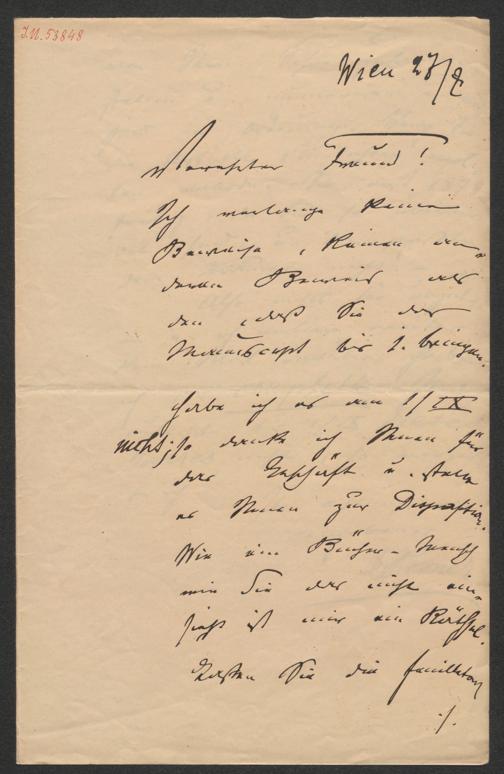 I.N. 53848
Wien 27/8
Verehrter Freund!
Ich verlange keine
Beweise, keinen an-
deren Beweis als
den, daß Sie das
Manuscript bis 1. bringen.
Habe ich es am 1/IX
nicht; so danke ich Ihnen für
das Geschäft u. stelle
es Ihnen zur Disposition.
Wie ein Bücher-Mensch
wie Sie das nicht ein-
sieht ist mir ein Räthsel.
Lassen Sie die Feuilleton
./.